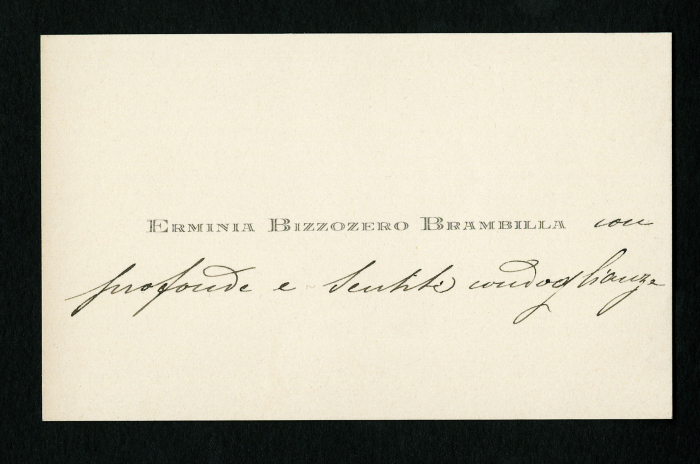 Erminia Bizzozero Brambilla con
profonde e sentite condoglianze